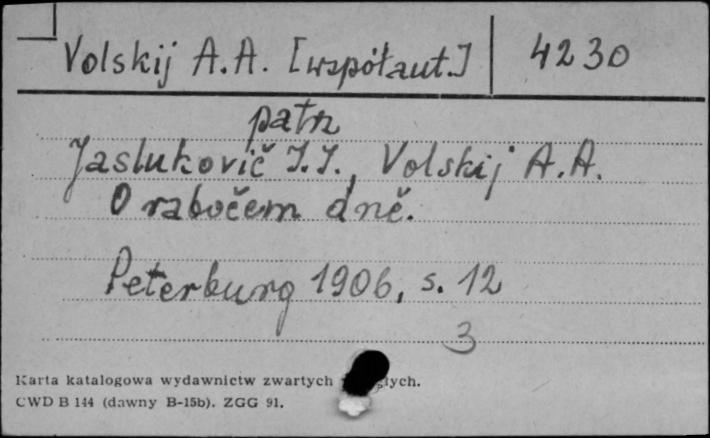 Volskij A.A. [współaut.] 4230
patrz
Jasluković I.I., Volskij A.A.
O rabočem dně.
Peterburg 1906, s. 12
3
Karta katalogowa wydawnictw zwartych
CWD B 144 (dawny B-15b). ZGG 91.